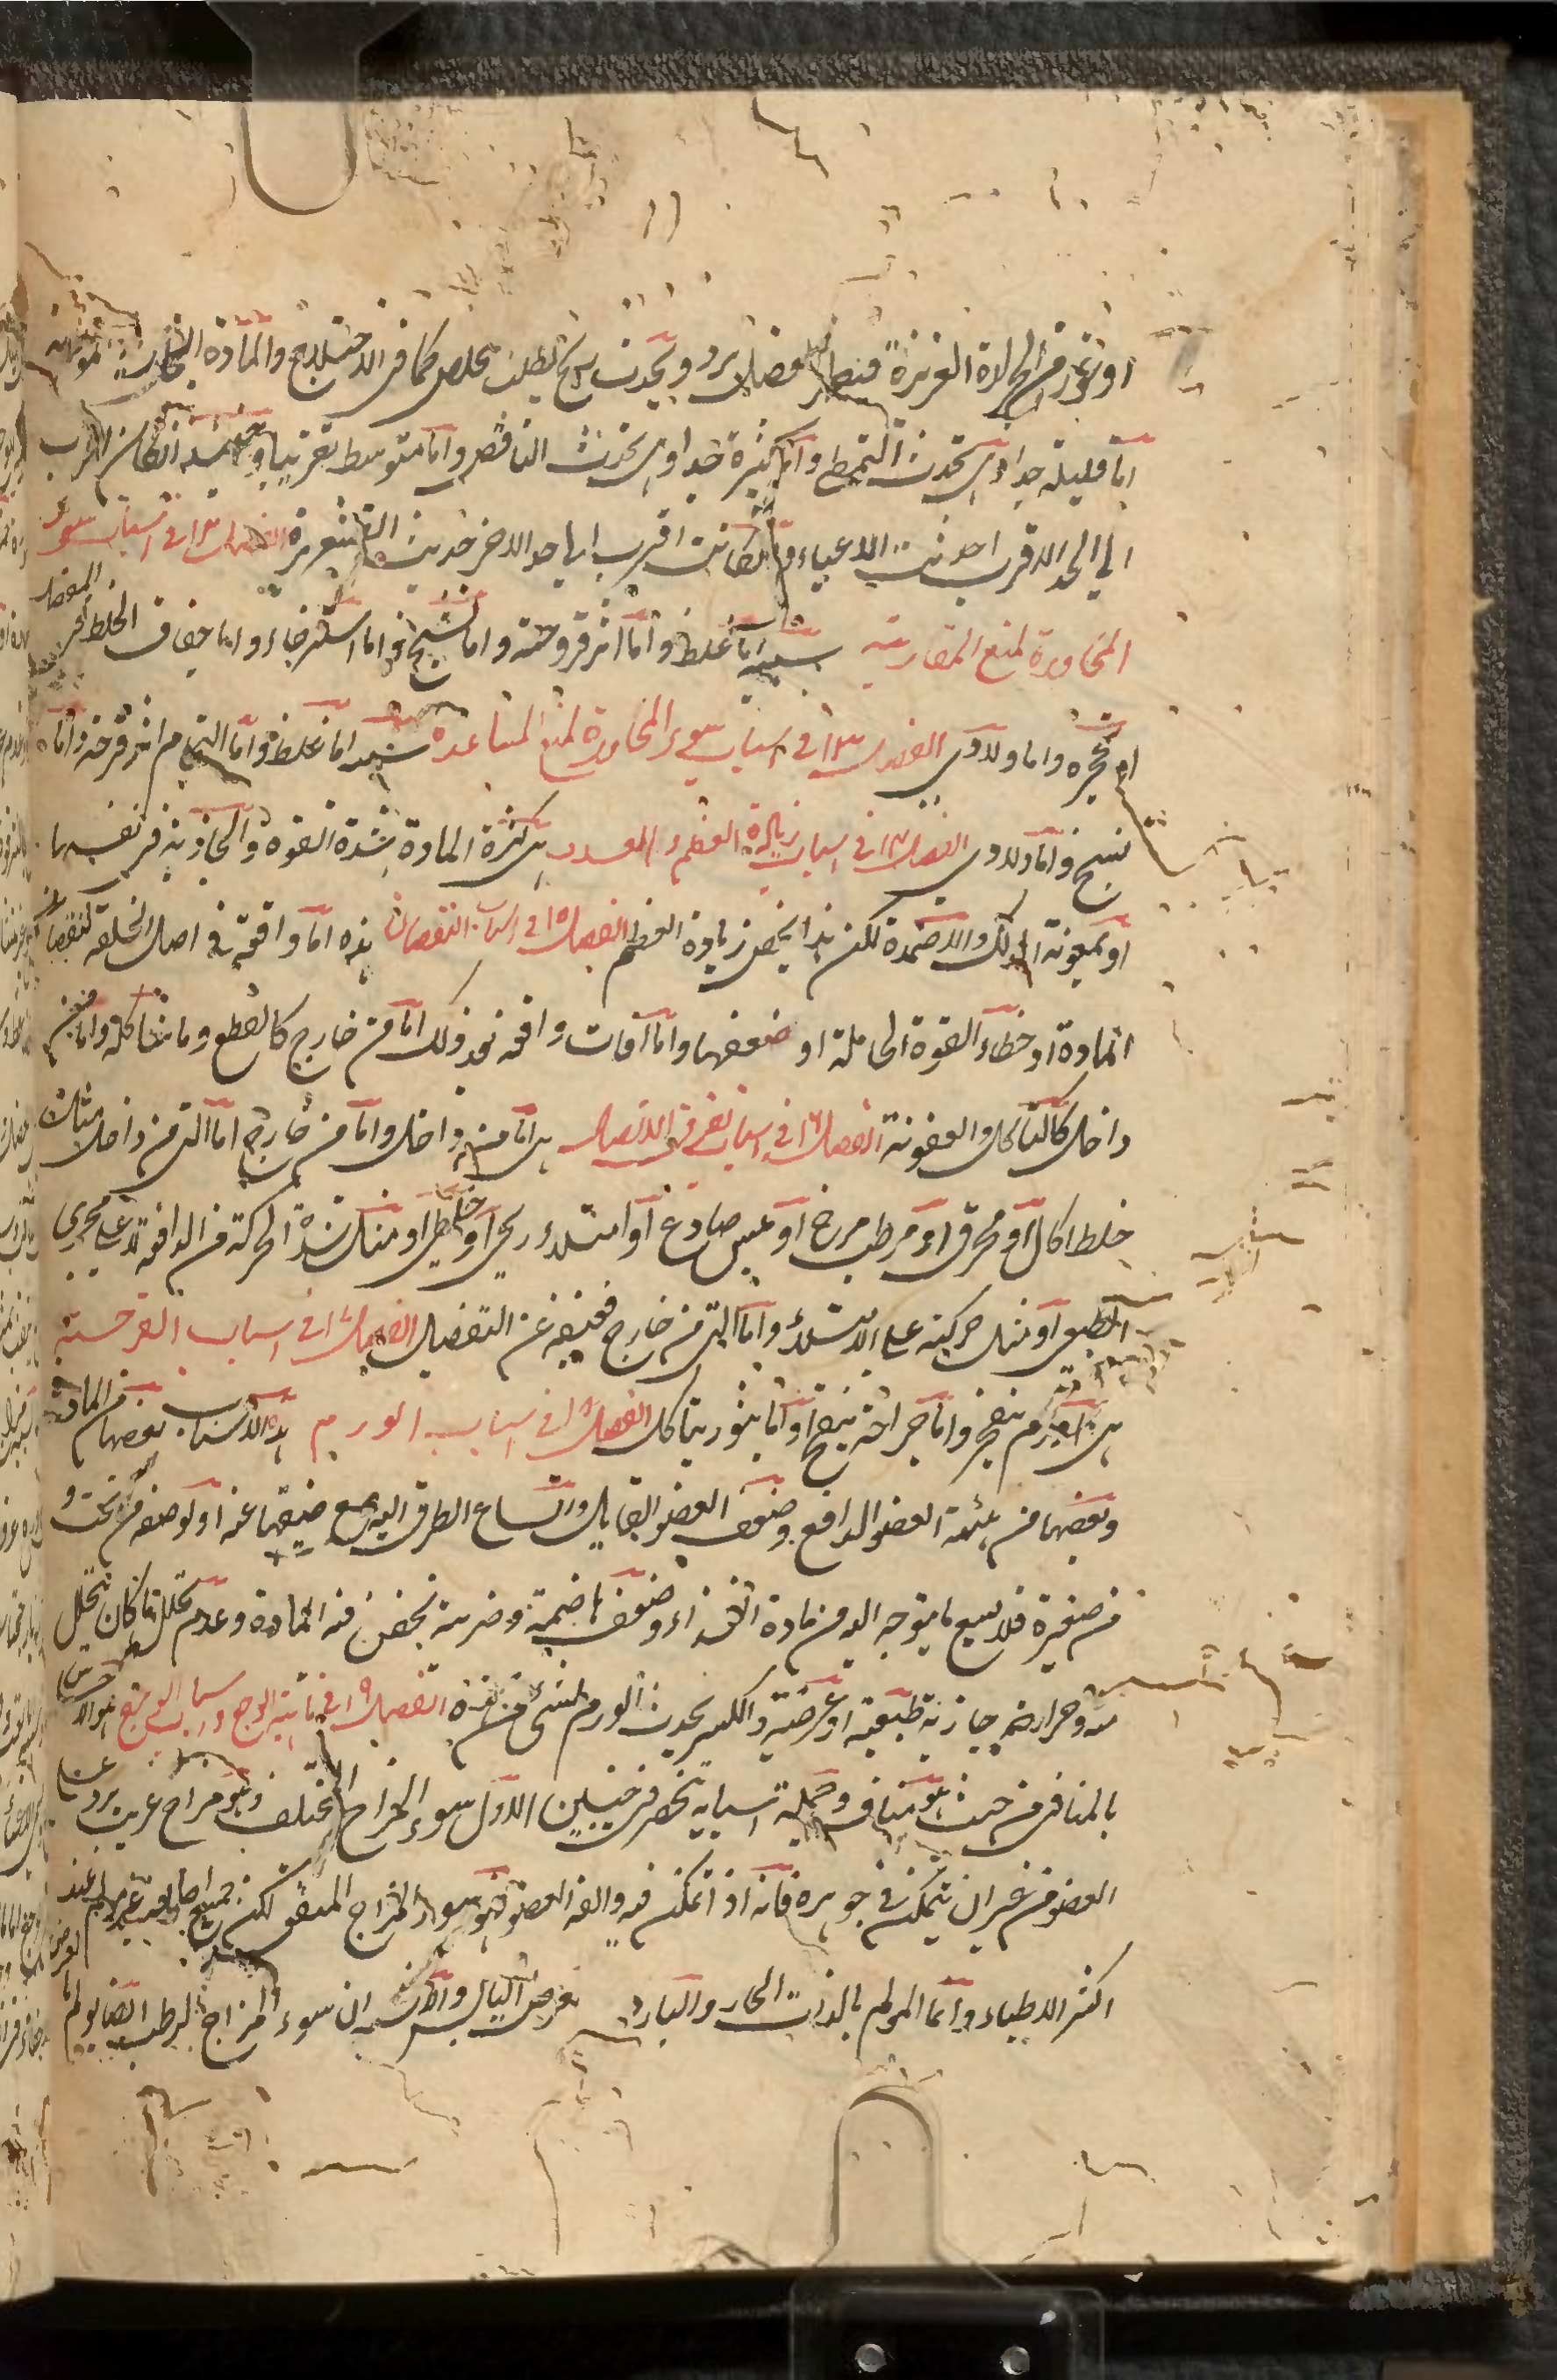 او تغور من الحرارة الغريزية فضلا يرد ويحدث ريح يطلب مخلص كما فى الاختلاج والمادة
اما قليلة جدا وهى تحدث التمطى واما كثيرة جدا وهى تحدث النافض واما متوسط تقريبا وحينئذ ان كان اقرب
الى الحد الاقرب احدثت الاعياء وان كانت اقرب الى حد الاخر حدثت القشعريرة الفصل ١٢ فى اسباب سوء
المجاورة لمنع المقاربة سببه اما غلظ واما اثر قرحة واما تشنج او اما استرخاء واما جفاف الخلط فى المفصل
او تحجره واما ولادى الفصل ١٣ فى اسباب سوء المجاورة لمنع المباعدة سببه اما غلظ واما التحام اثر قرحة واما
تشنج واما ولادى الفصل ١٤ فى اسباب زيادة العظم والعدد هى كثرة المادة وشدة القوة الجاذبة فى نفسها
او بمعونة الدلك والاضمدة لكن هذا يخص زيادة العظم الفصل ١٥ فى اسباب النقصان هذه اما واقعة فى اصل الخلقة لنقصان
المادة او خطاء القوة الحاملة او ضعفها واما آفات واقعة بعد ذلك اما من خارج كالقطع وما شاكله واما من
داخل كالتأكل والعفونة الفصل ١٦ فى اسباب تفرق الاتصال هى اما من داخل واما من خارج اما التى من داخل مثل
خلط اكال او محرق او مرطب مرخ او ميبس صادع او امتلاء ريحى او خلطى او مثل شدة الحركة من الدافعة على مجرى
الطبعى او مثل حركة على الامتلاء واما التى من خارج فغنية عن التفصيل الفصل ١٧ فى اسباب القرحة
هى اما ورم ينفجر واما جراحة يتقيح او اما بثور يتأكل الفصل ١٨ فى اسباب الورم هذه الاسباب بعضها من المادة
وبعضها من هيئة العضو الدافع وضعف العضو القابل واتساع الطرق اليه مع ضيقها عنه او لوضعه من تحت او
من صغيرة فلا يسع ما يتوجه اليه من مادة الغذاء وضعف هاضمة وضربة تحقن فيه المادة وعدم تحلل ما كان يتحلل
منه وحرارة جاذبة طبعية او عرضية والكسر يحدث الورم لشىء من الفصل ١٩ فى ماهية الوجع واسباب الوجع هو الاحساس
بالمنافى من حيث هو مناف وجملة اسبابه تنحصر فى جنسين الاول سوء المزاج المختلف وهو مزاج غريب يرد على
العضو من غير ان يتمكن فى جوهره فانه اذا تمكن فيه والفه العضو فهو سوء المزاج المتفق لكن عند
اكثر الاطباء وانما المولم بالذات الحار والبارد بعرض اليابس ان سوء المزاج الرطب ايضا يولم